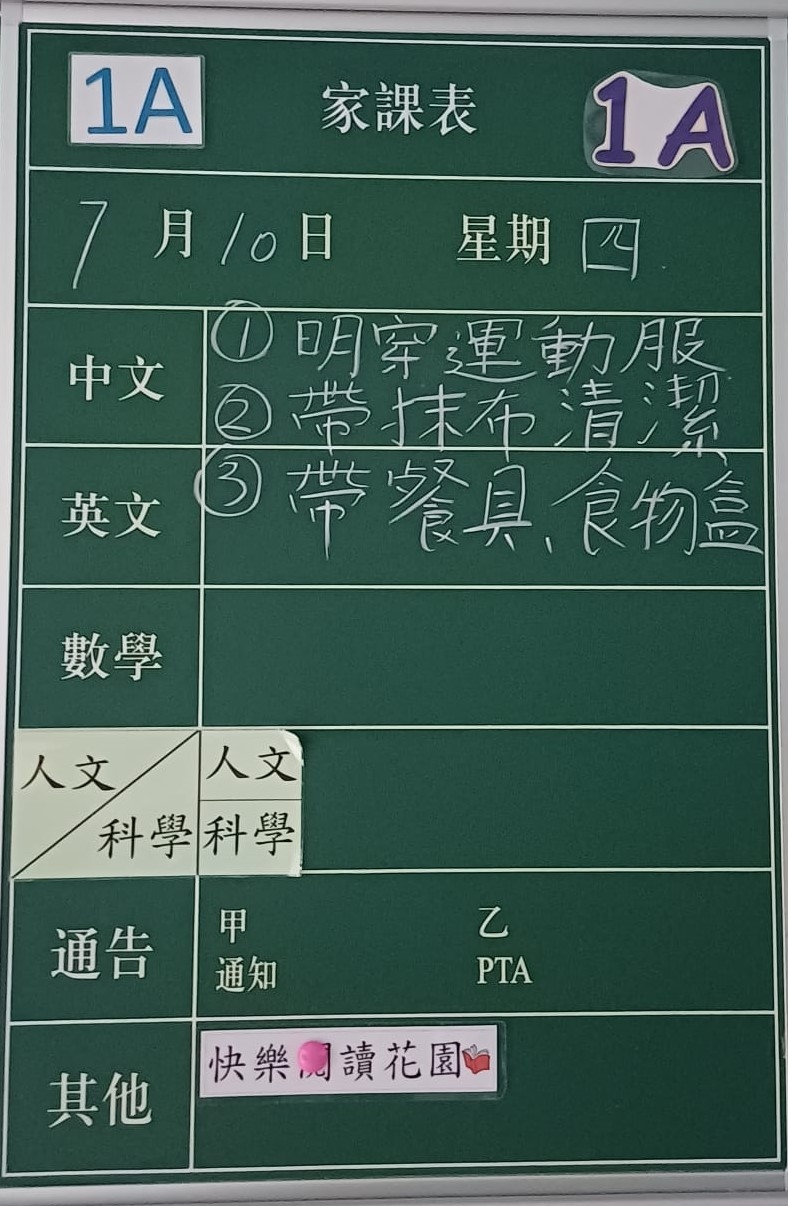 1A 家課表 1A
7月10日 星期四
中文 ①明穿運動服
②帶抹布清潔
英文 ③帶餐具、食物盒
數學
人文 人文
科學 科學
通告 甲 乙
通知 PTA
其他 快樂閱讀花園